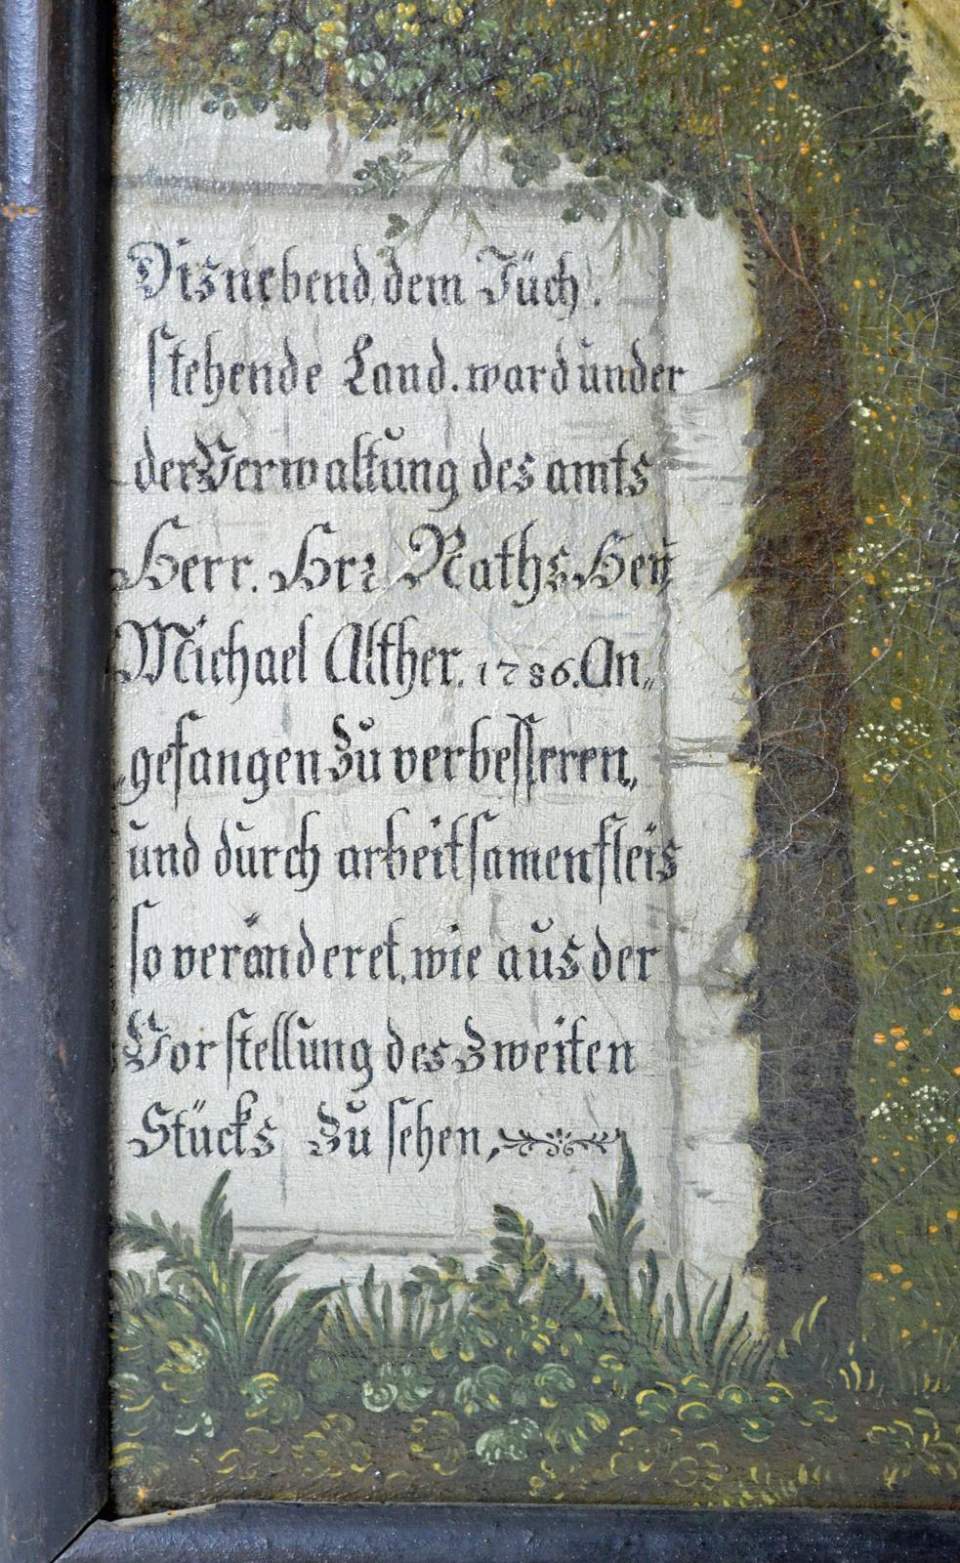 Dis nebend dem Jüch.
stehende Land. ward under
der Verwaltung des amts
Herr. Hrz Raths Hey
Michael Alther. 1786. An„
„gefangen zu verbesseren,
und durch arbeitsamen fleis
so veränderet, wie aus der
Vorstellung des zweiten
Stücks zu sehen,